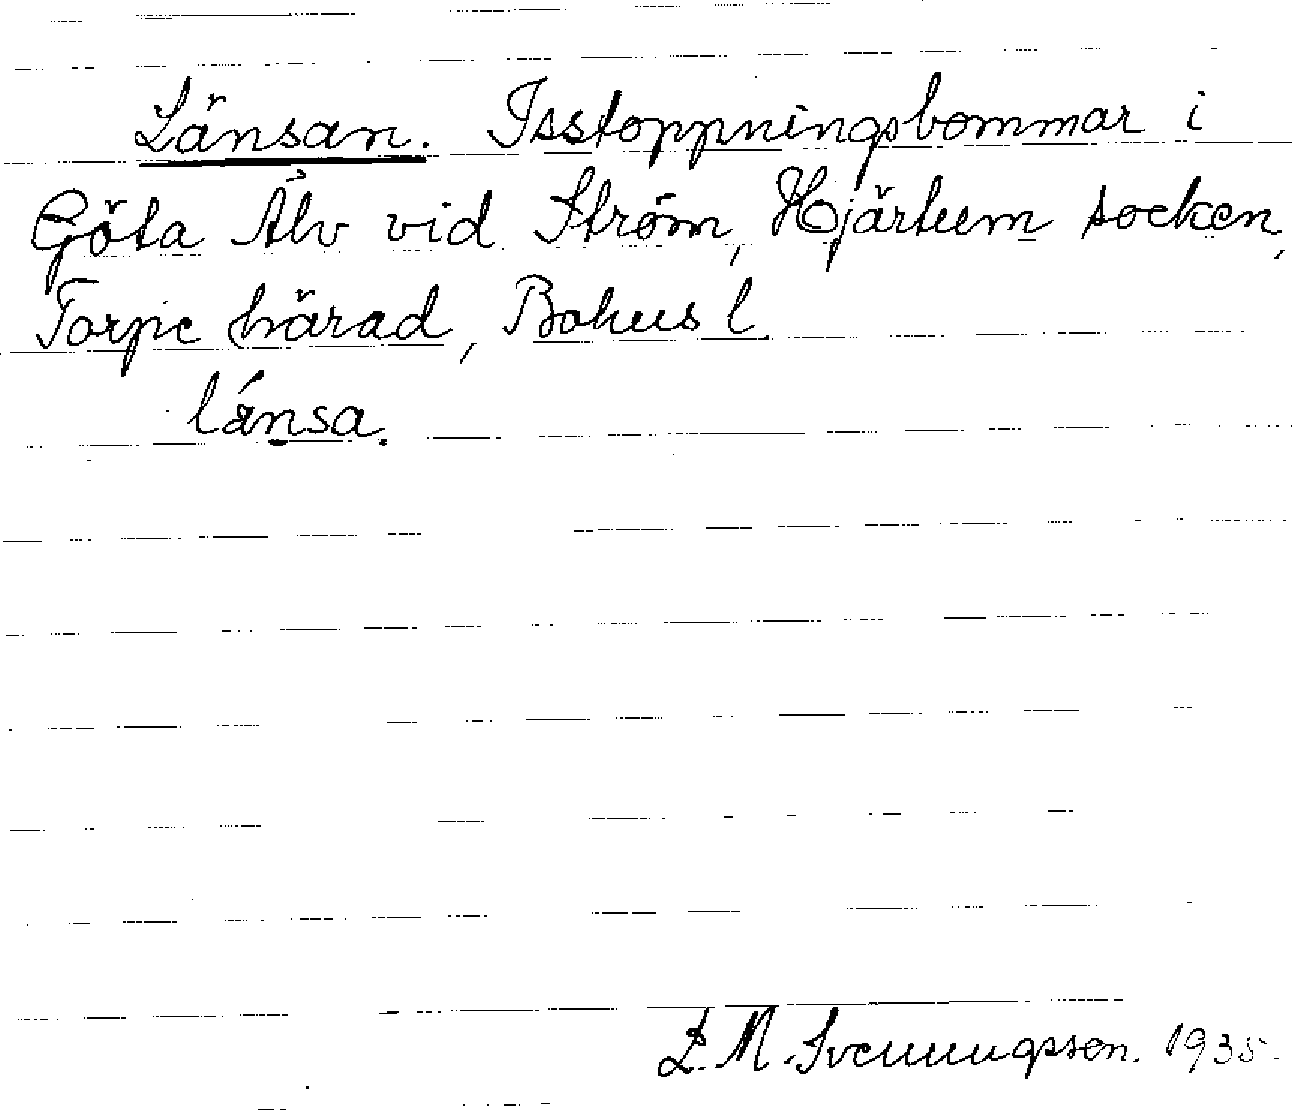 Länsan. Isstoppningsbommar i
Göta Älv vid Ström, Hjärtum socken,
Torpe härad, Bohus l.
länsa.
L. M. Svenungsson. 1935.